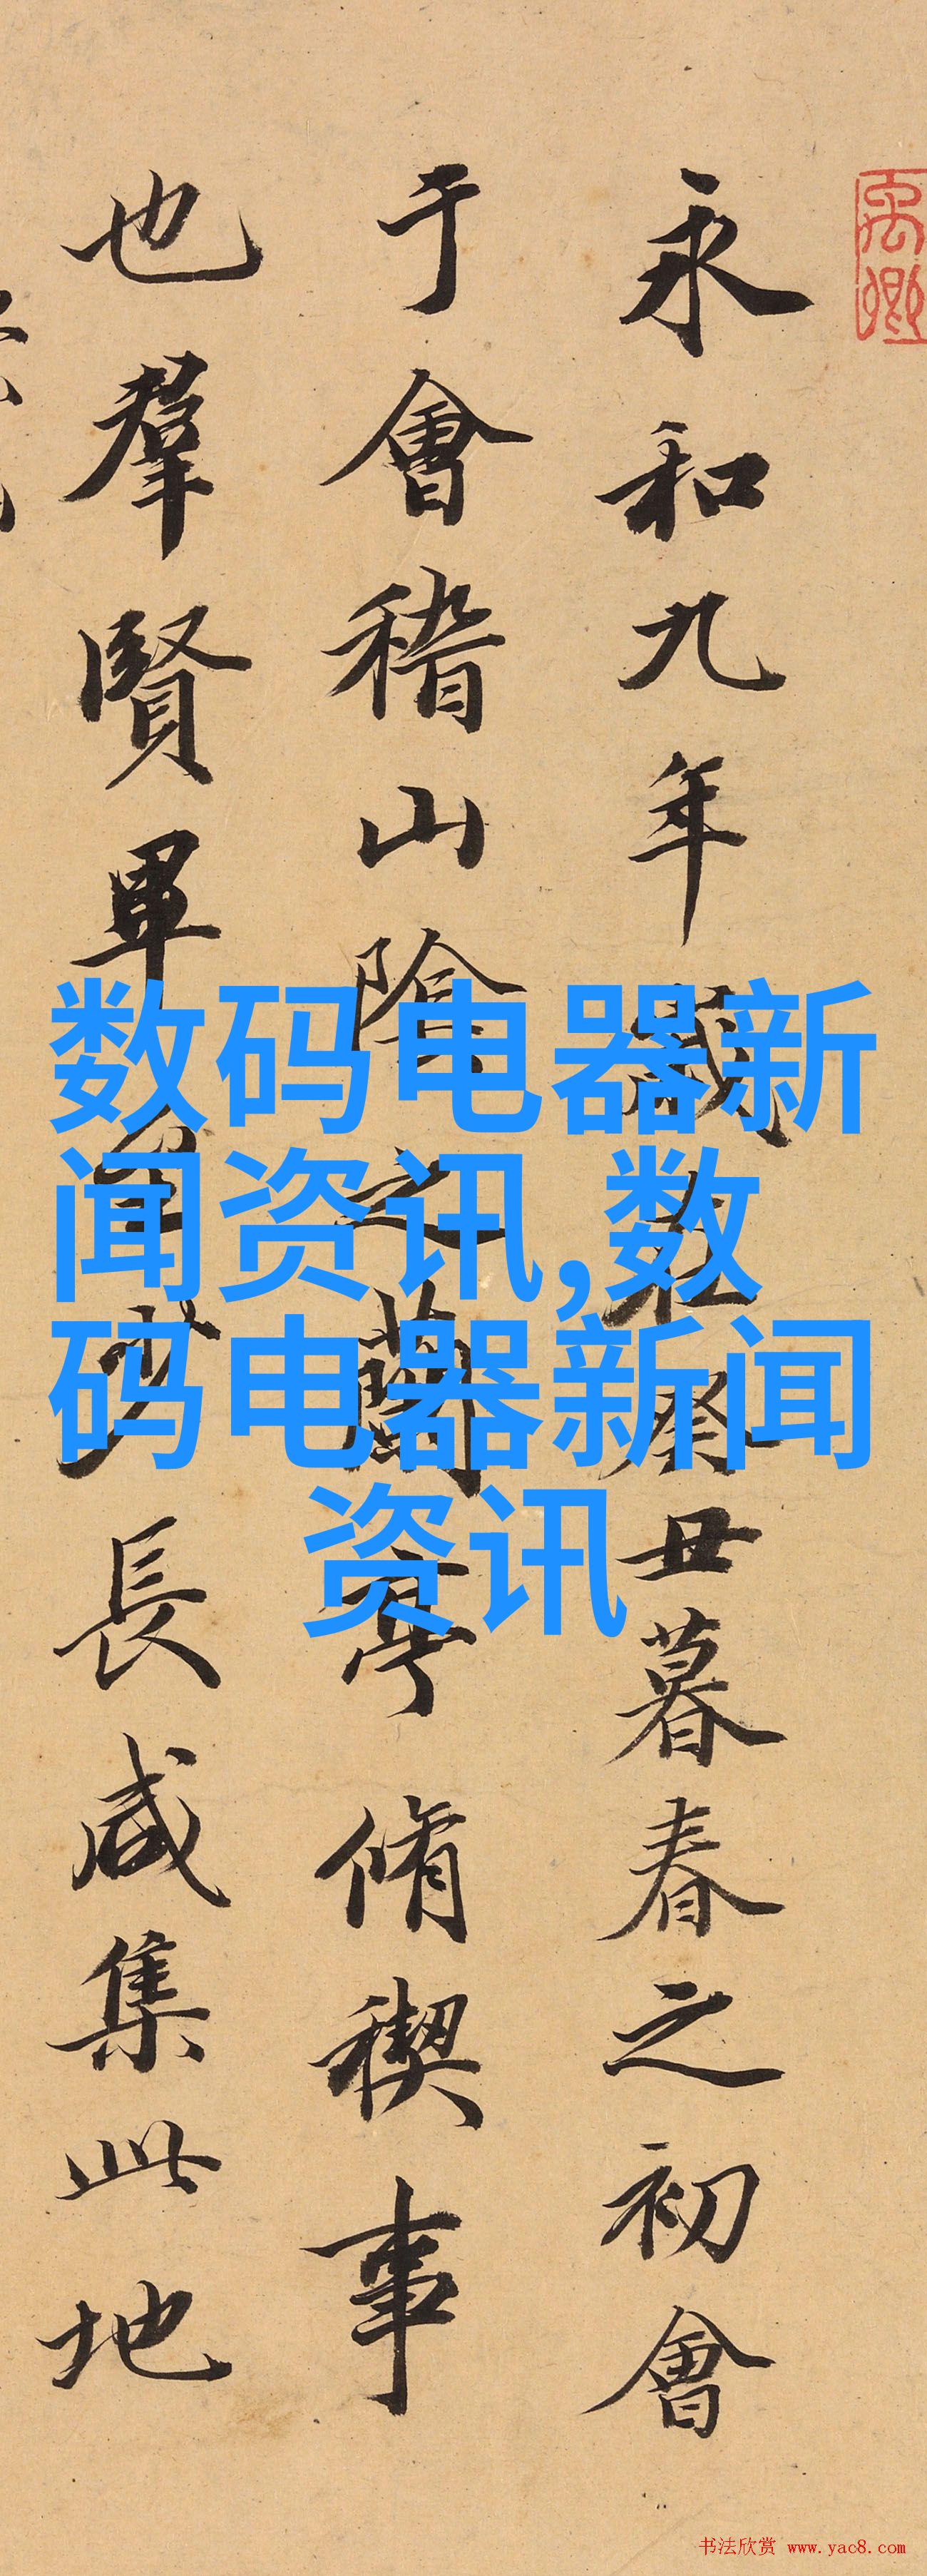 永和九年歲在癸丑暮春之初會
于會稽山陰之蘭亭脩稧事
也羣賢畢至少長咸集此地
数码电器新
闻资讯,数
码电器新闻
资讯
书法欣赏 www.yac8.com